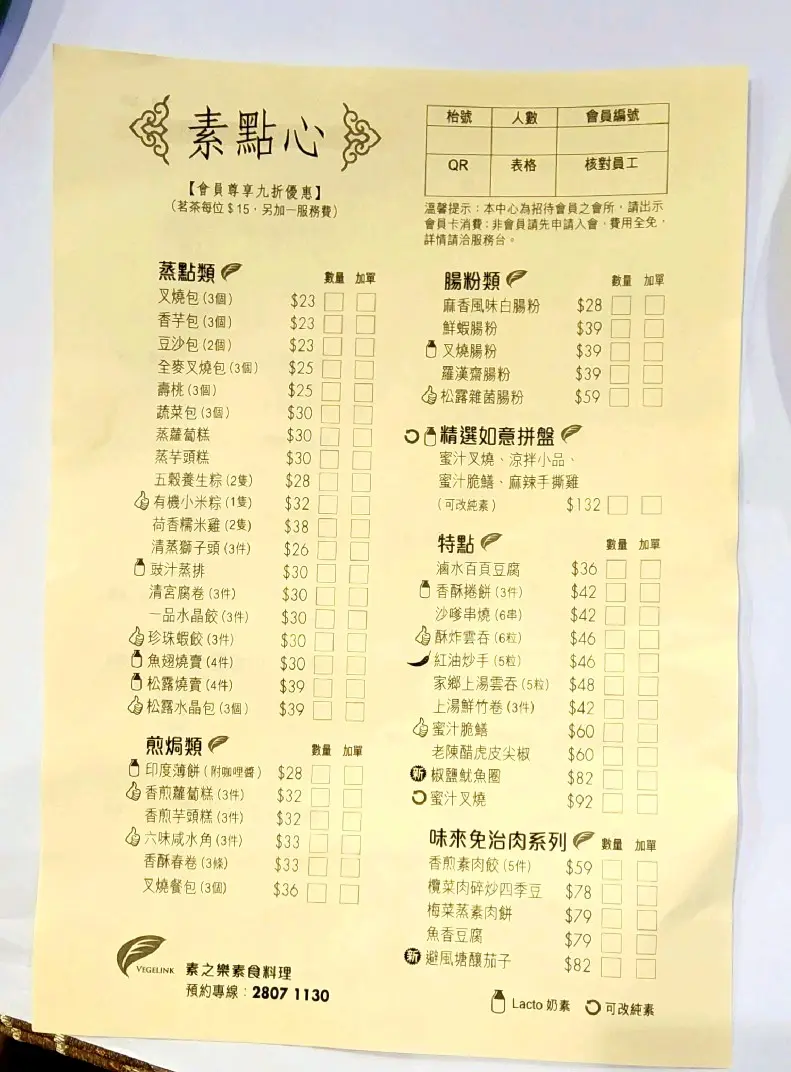 素點心
【會員尊享九折優惠】
(茗茶每位$15，另加一服務費)
枱號 人數 會員編號
QR 表格 核對員工
溫馨提示：本中心為招待會員之會所，請出示
會員卡消費；非會員請先申請入會，費用全免，
詳情請洽服務台。
蒸點類 數量 加單
叉燒包(3個) $23
香芋包(3個) $23
豆沙包(2個) $23
全麥叉燒包(3個) $25
壽桃(3個) $25
蔬菜包(3個) $30
蒸蘿蔔糕 $30
蒸芋頭糕 $30
五穀養生粽(2隻) $28
有機小米粽(1隻) $32
荷香糯米雞(2隻) $38
清蒸獅子頭(3件) $26
豉汁蒸排 $30
清宮腐卷(3件) $30
一品水晶餃(3件) $30
珍珠蝦餃(3件) $30
魚翅燒賣(4件) $30
松露燒賣(4件) $39
松露水晶包(3個) $39
煎焗類 數量 加單
印度薄餅(附咖哩醬) $28
香煎蘿蔔糕(3件) $32
香煎芋頭糕(3件) $32
六味咸水角(3件) $33
香酥春卷(3條) $33
叉燒餐包(3個) $36
腸粉類 數量 加單
麻香風味白腸粉 $28
鮮蝦腸粉 $39
叉燒腸粉 $39
羅漢齋腸粉 $39
松露雜菌腸粉 $59
精選如意拼盤
蜜汁叉燒、涼拌小品、
蜜汁脆鱔、麻辣手撕雞
(可改純素) $132
特點 數量 加單
滷水百頁豆腐 $36
香酥捲餅(3件) $42
沙嗲串燒(6串) $42
酥炸雲吞(6粒) $46
紅油炒手(5粒) $46
家鄉上湯雲吞(5粒) $48
上湯鮮竹卷(3件) $42
蜜汁脆鱔 $60
老陳醋虎皮尖椒 $60
新 椒鹽魷魚圈 $82
蜜汁叉燒 $92
味來免治肉系列 數量 加單
香煎素肉餃(5件) $59
欖菜肉碎炒四季豆 $78
梅菜蒸素肉餅 $79
魚香豆腐 $79
新 避風塘釀茄子 $82
VEGELINK 素之樂素食料理
預約專線：2807 1130
Lacto 奶素 可改純素